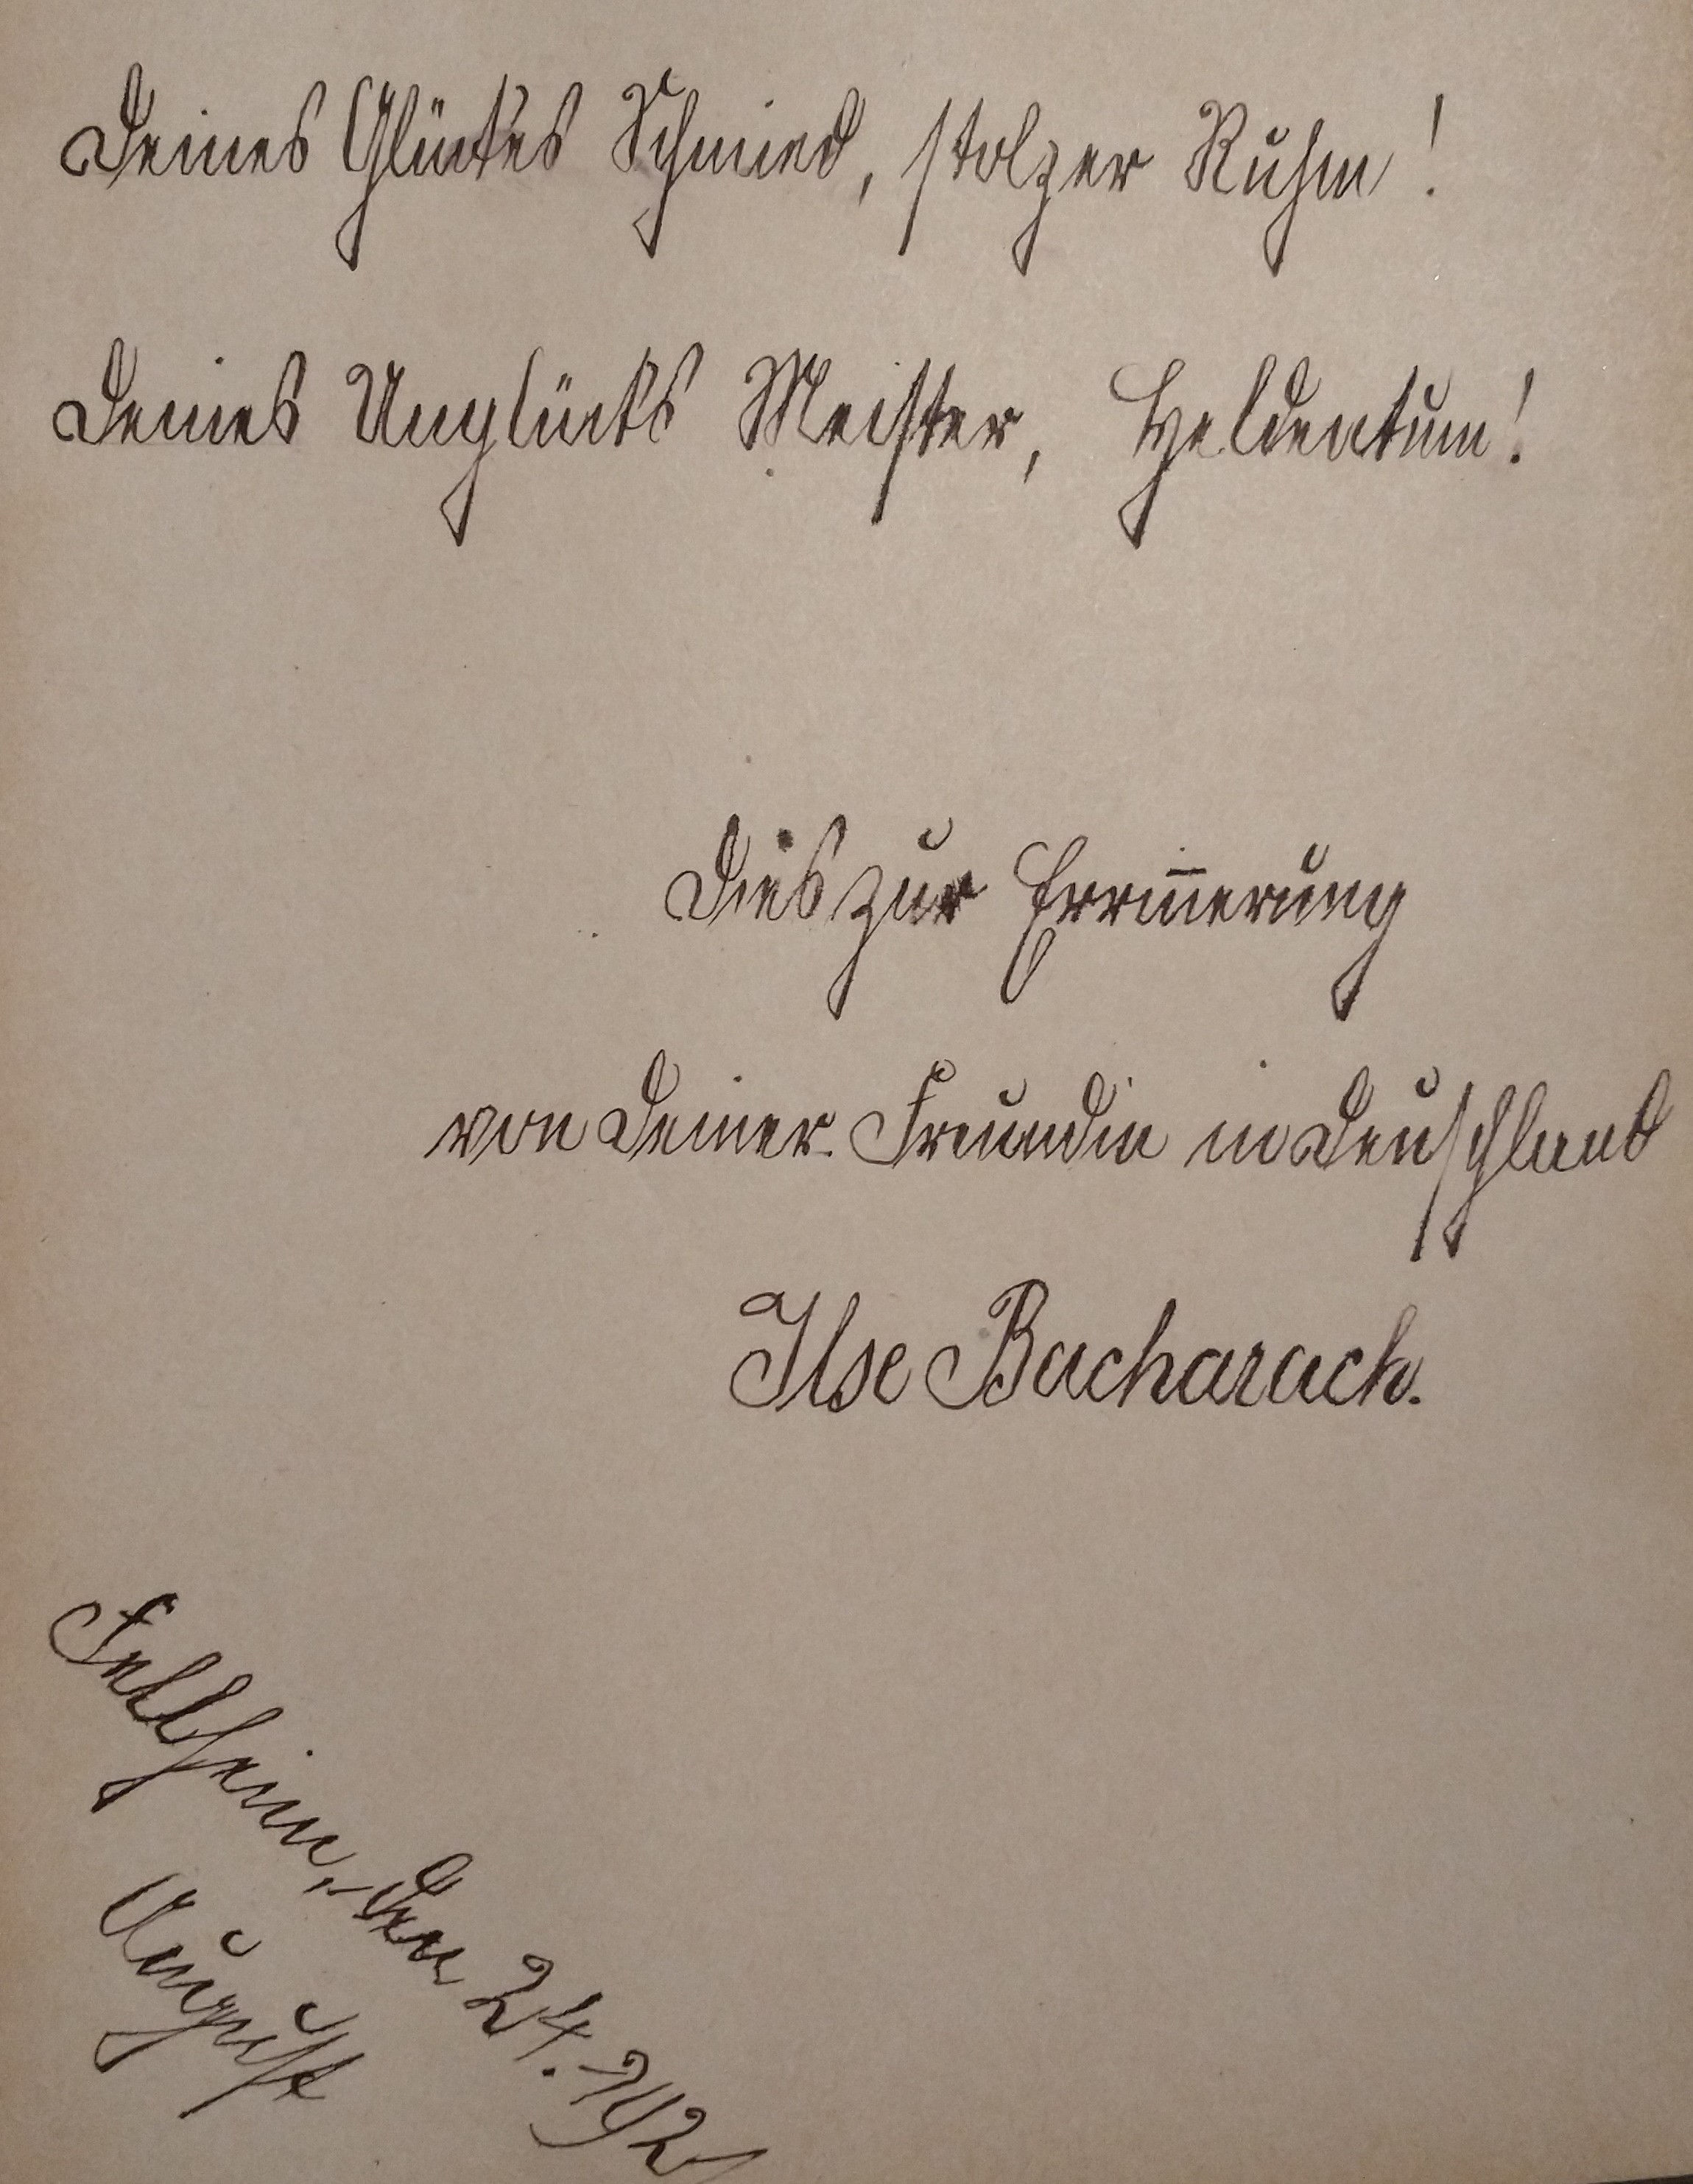 Deines Glückes Schmied, stolzer Ruhm!
Deines Unglücks Meister, Heldentum!
Dies zur Errin̄erung
von Deiner Freundin in Deuschland
Ilse Bacharach.
Fellheim, den 24. 1921
August